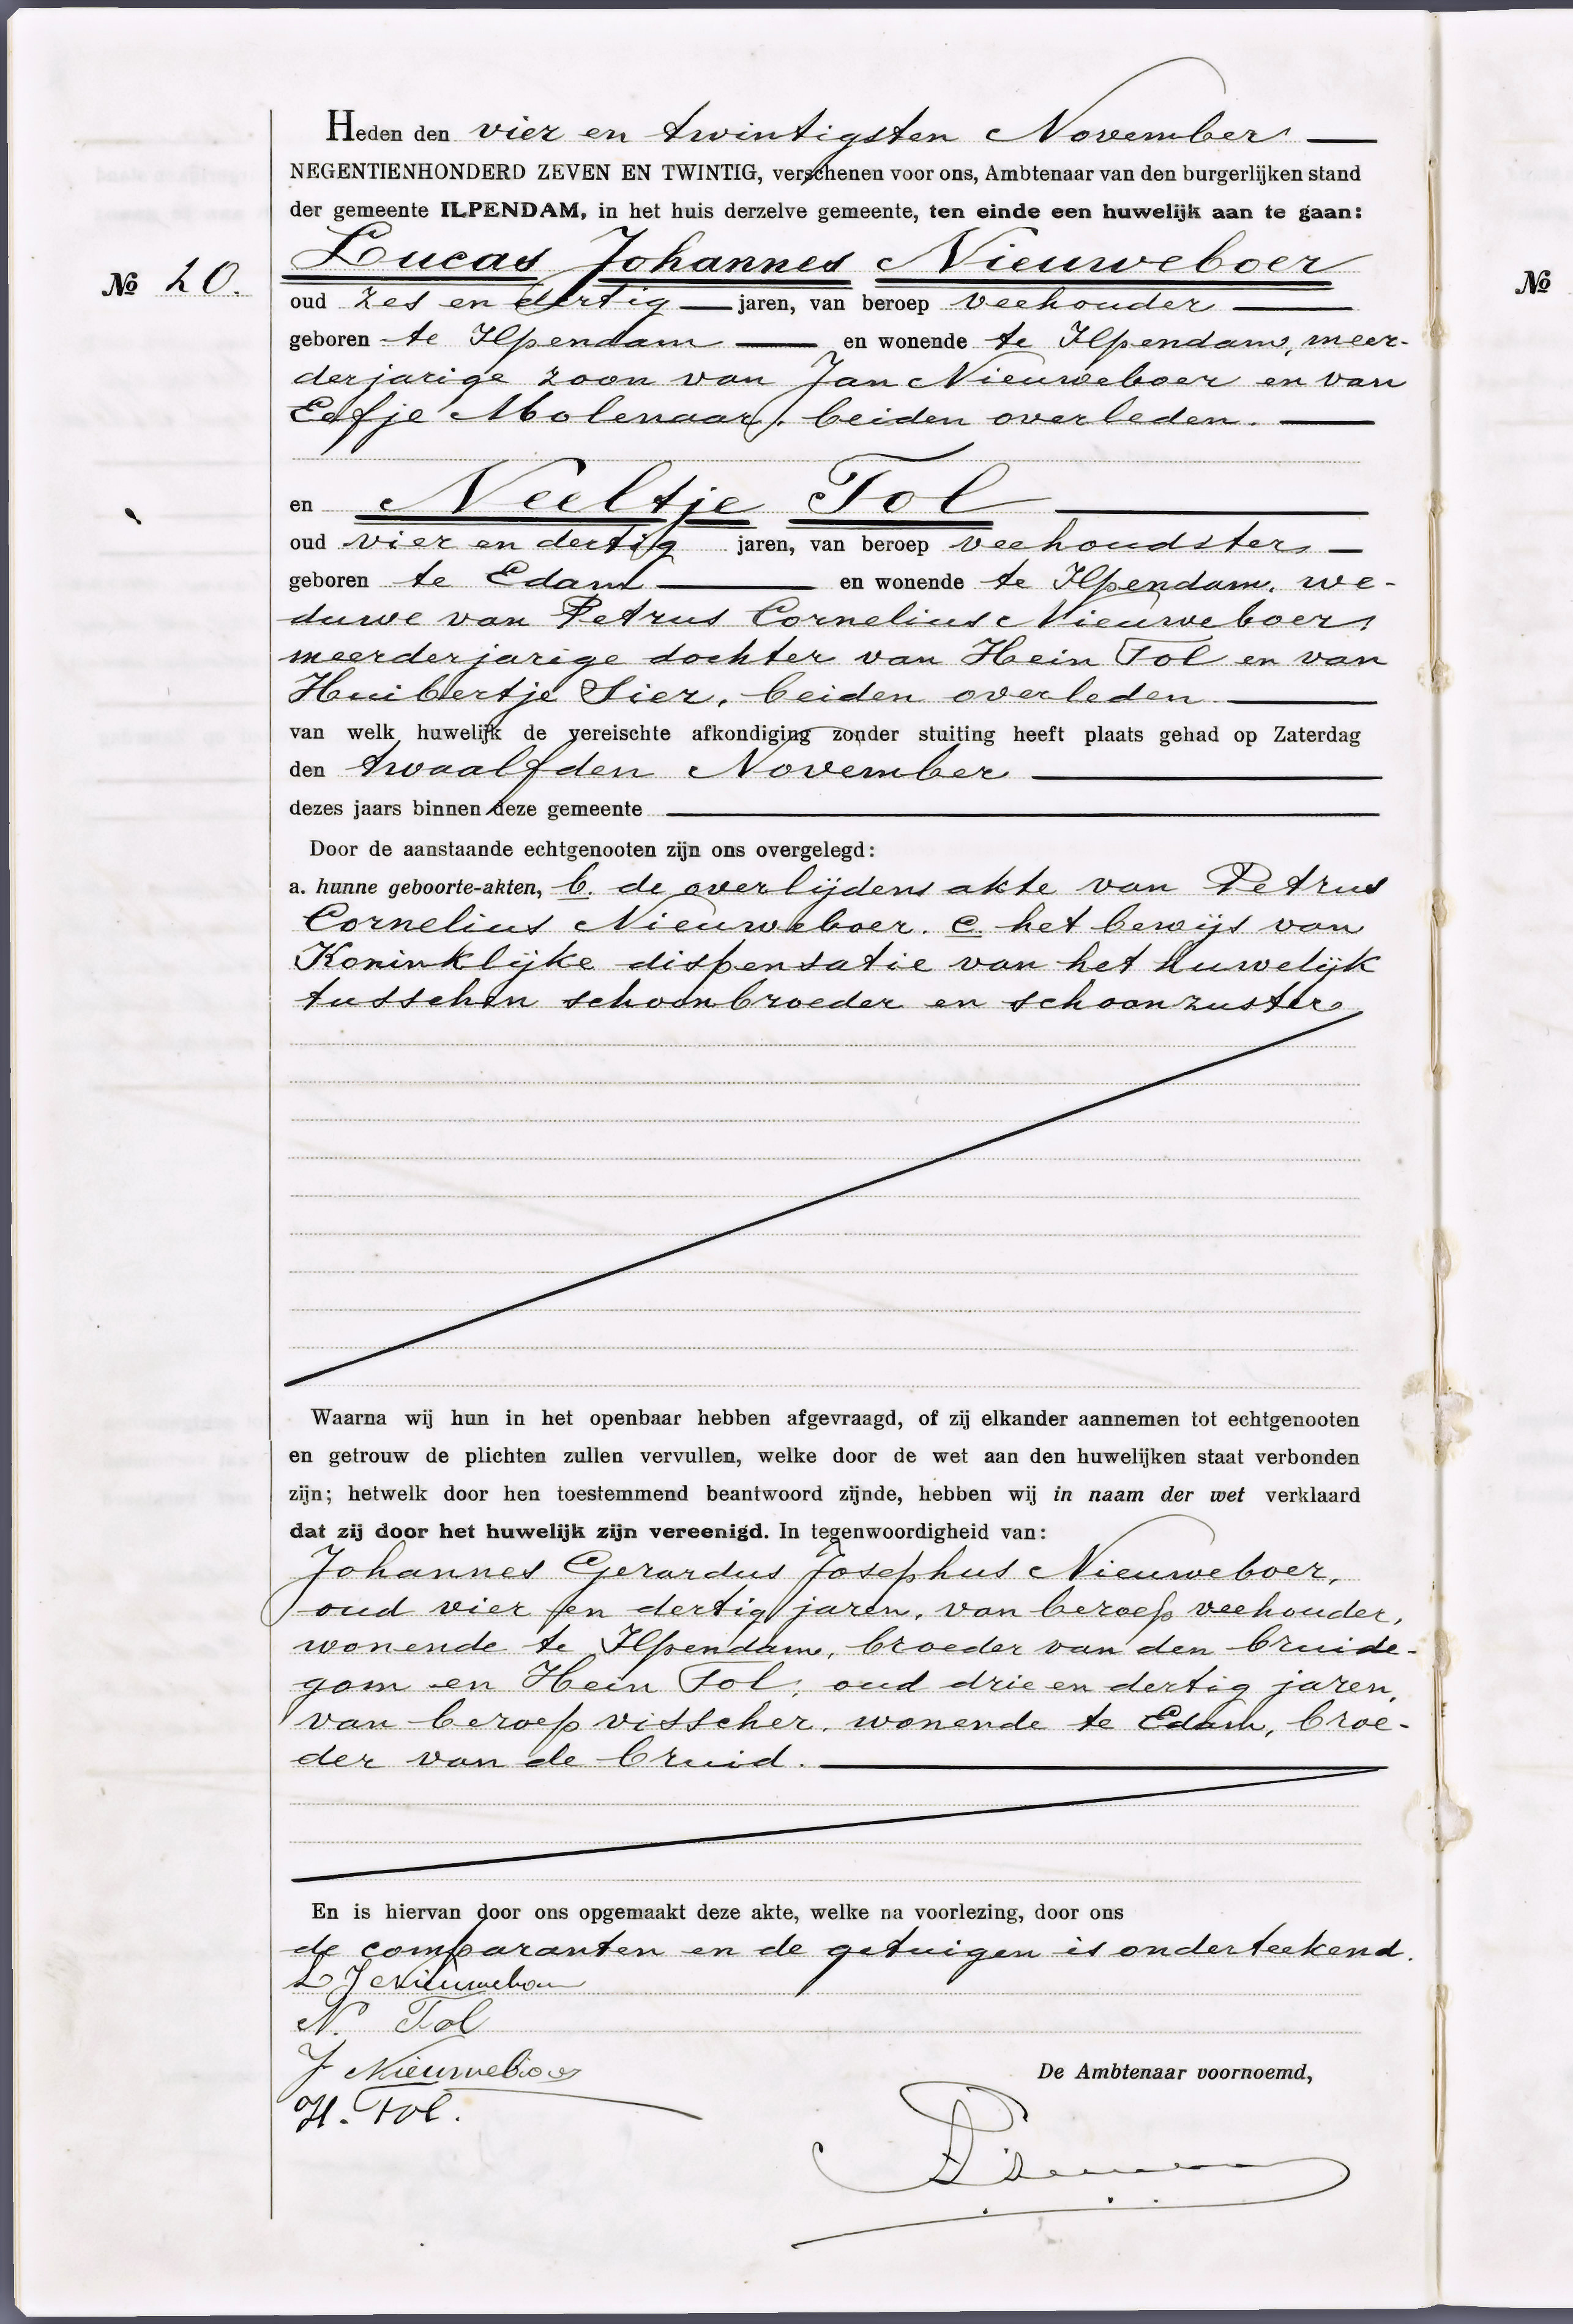 Heden den vier en twintigsten November
NEGENTIENHONDERD ZEVEN EN TWINTIG, verschenen voor ons, Ambtenaar van den burgerlijken stand
der gemeente ILPENDAM, in het huis derzelve gemeente, ten einde een huwelijk aan te gaan:
Lucas Johannes Nieuweboer
№ 20. №
oud zes en dertig jaren, van beroep veehouder
geboren te Ilpendam en wonende te Ilpendam, meer-
derjarige zoon van Jan Nieuweboer en van
Eefje Molenaar, beiden overleden.
en Neeltje Tol
oud vier en dertig jaren, van beroep veehoudster
geboren te Edam en wonende te Ilpendam, we-
duwe van Petrus Cornelius Nieuweboer,
meerderjarige dochter van Hein Tol en van
Huibertje Sier, beiden overleden
van welk huwelijk de vereischte afkondiging zonder stuiting heeft plaats gehad op Zaterdag
den twaalfden November
dezes jaars binnen deze gemeente
Door de aanstaande echtgenooten zijn ons overgelegd:
a. hunne geboorte-akten, b. de overlijdens akte van Petrus
Cornelius Nieuweboer. c. het bewijs van
Koninklijke dispensatie van het huwelijk
tusschen schoonbroeder en schoonzuster
Waarna wij hun in het openbaar hebben afgevraagd, of zij elkander aannemen tot echtgenooten
en getrouw de plichten zullen vervullen, welke door de wet aan den huwelijken staat verbonden
zijn; hetwelk door hen toestemmend beantwoord zijnde, hebben wij in naam der wet verklaard
dat zij door het huwelijk zijn vereenigd. In tegenwoordigheid van:
Johannes Gerardus Josephus Nieuweboer,
oud vier en dertig jaren, van beroep veehouder,
wonende te Ilpendam, broeder van den bruide-
gom en Hein Tol, oud drie en dertig jaren,
van beroep visscher, wonende te Edam, broe-
der van de bruid.
En is hiervan door ons opgemaakt deze akte, welke na voorlezing, door ons
de comparanten en de getuigen is onderteekend.
L J Nieuweboer
N. Tol
J Nieuweboer
De Ambtenaar voornoemd,
H. Tol.